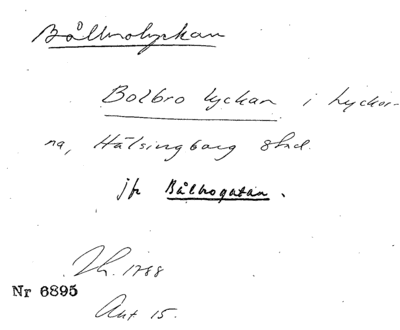 Bålbrolyckan
Bolbro lyckan i Lyckor-
na, Hälsingborg stad.
jfr Bålbrogatan.
Lh. 1788
Nr 6895
Akt 15.